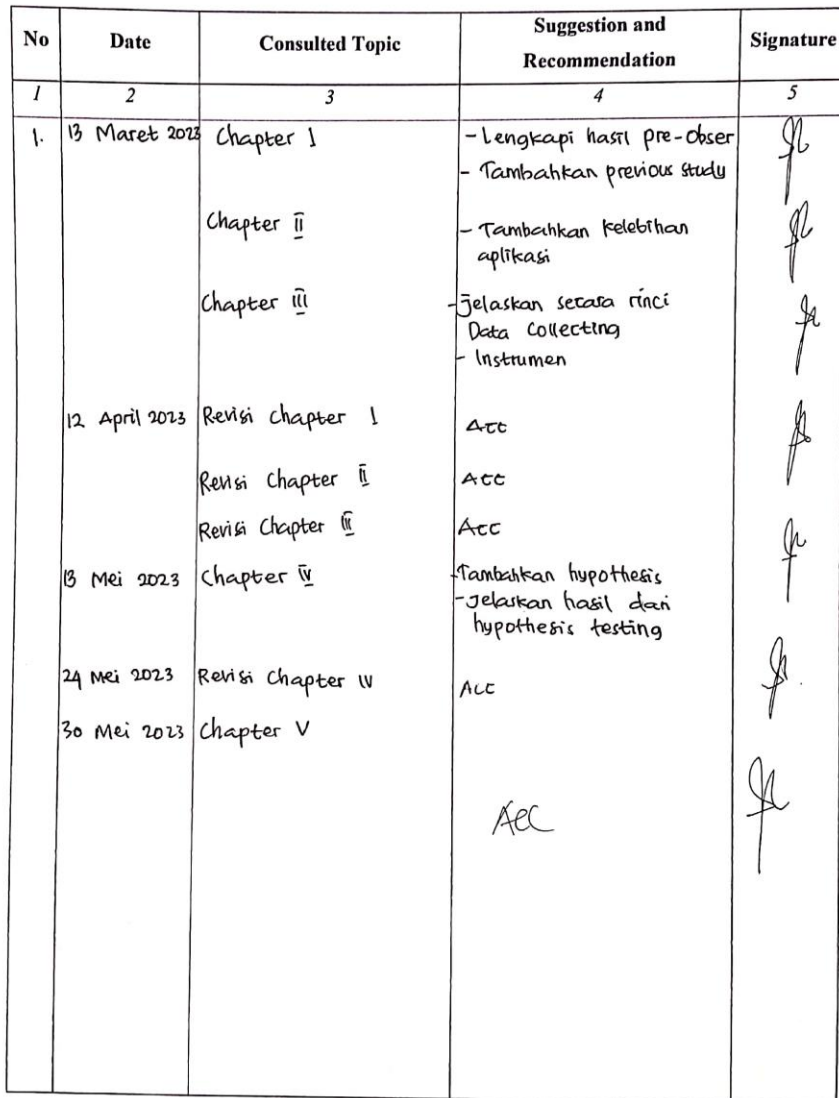 No Date Consulted Topic Suggestion and Recommendation Signature
1 2 3 4 5
1. 13 Maret 2023 Chapter I - Lengkapi hasil pre-obser
- Tambahkan previous study
Chapter II - Tambahkan kelebihan
aplikasi
Chapter III - Jelaskan secara rinci
Data Collecting
- Instrumen
12 April 2023 Revisi Chapter I Acc
Revisi Chapter II Acc
Revisi Chapter III Acc
13 Mei 2023 Chapter IV - Tambahkan hypothesis
- Jelaskan hasil dari
hypothesis testing
24 Mei 2023 Revisi Chapter IV Acc
30 Mei 2023 Chapter V
Acc